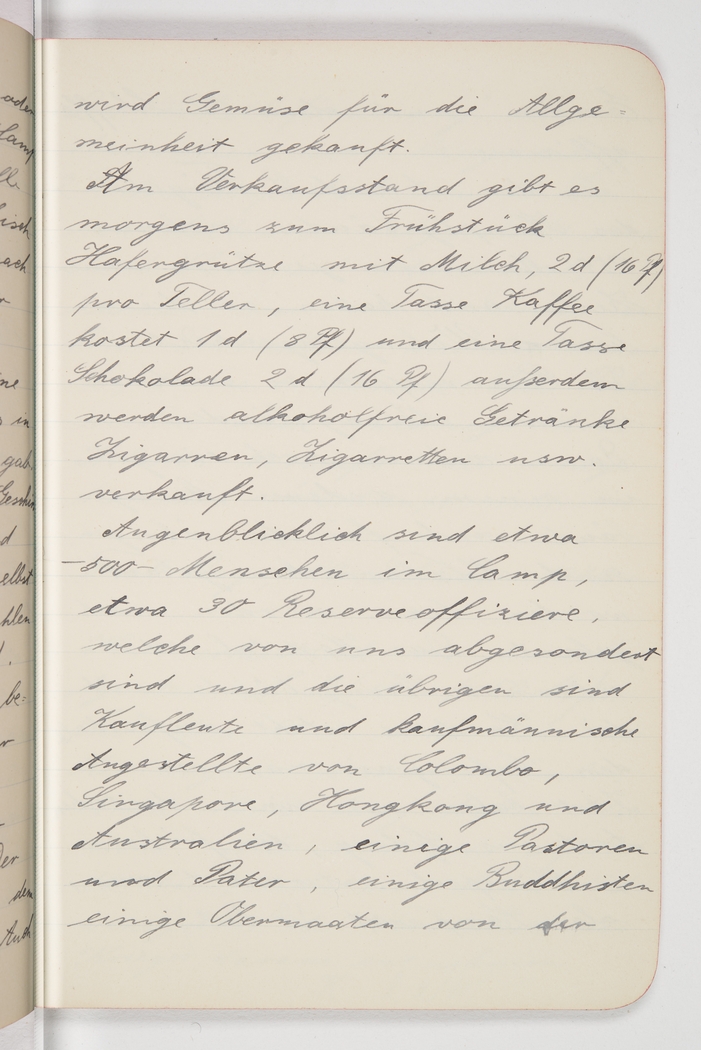 wird Gemüse für die Allge-
meinheit gekauft.
Am Verkaufsstand gibt es
morgens zum Frühstück
Hafergrütze mit Milch, 2 d (16 Pf)
pro Teller, eine Tasse Kaffee
kostet 1 d (8 Pf) und eine Tasse
Schokolade 2 d (16 Pf) außerdem
werden alkoholfreie Getränke
Zigarren, Zigarretten usw.
verkauft.
Augenblicklich sind etwa
-500- Menschen im Camp,
etwa 30 Reserveoffiziere,
welche von uns abgesondert
sind und die übrigen sind
Kaufleute und kaufmännische
Angestellte von Colombo,
Singapore, Hongkong und
Australien, einige Pastoren
und Pater, einige Buddhisten
einige Obermaaten von der